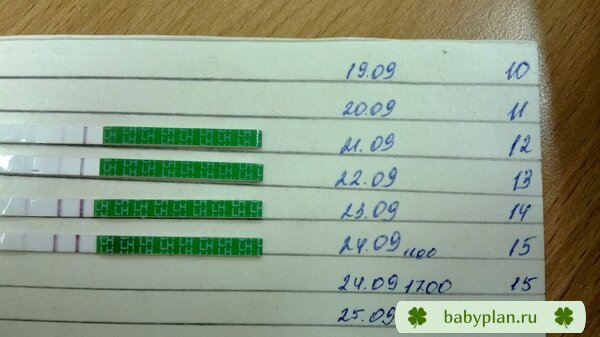 19.09 10
20.09 11
21.09 12
LH LH LH LH LH LH LH LH
22.09 13
LH LH LH LH LH LH LH LH
23.09 14
LH LH LH LH LH LH LH LH
24.09 11.00 15
LH LH LH LH LH LH LH LH
24.09 17.00 15
25.09
babyplan.ru